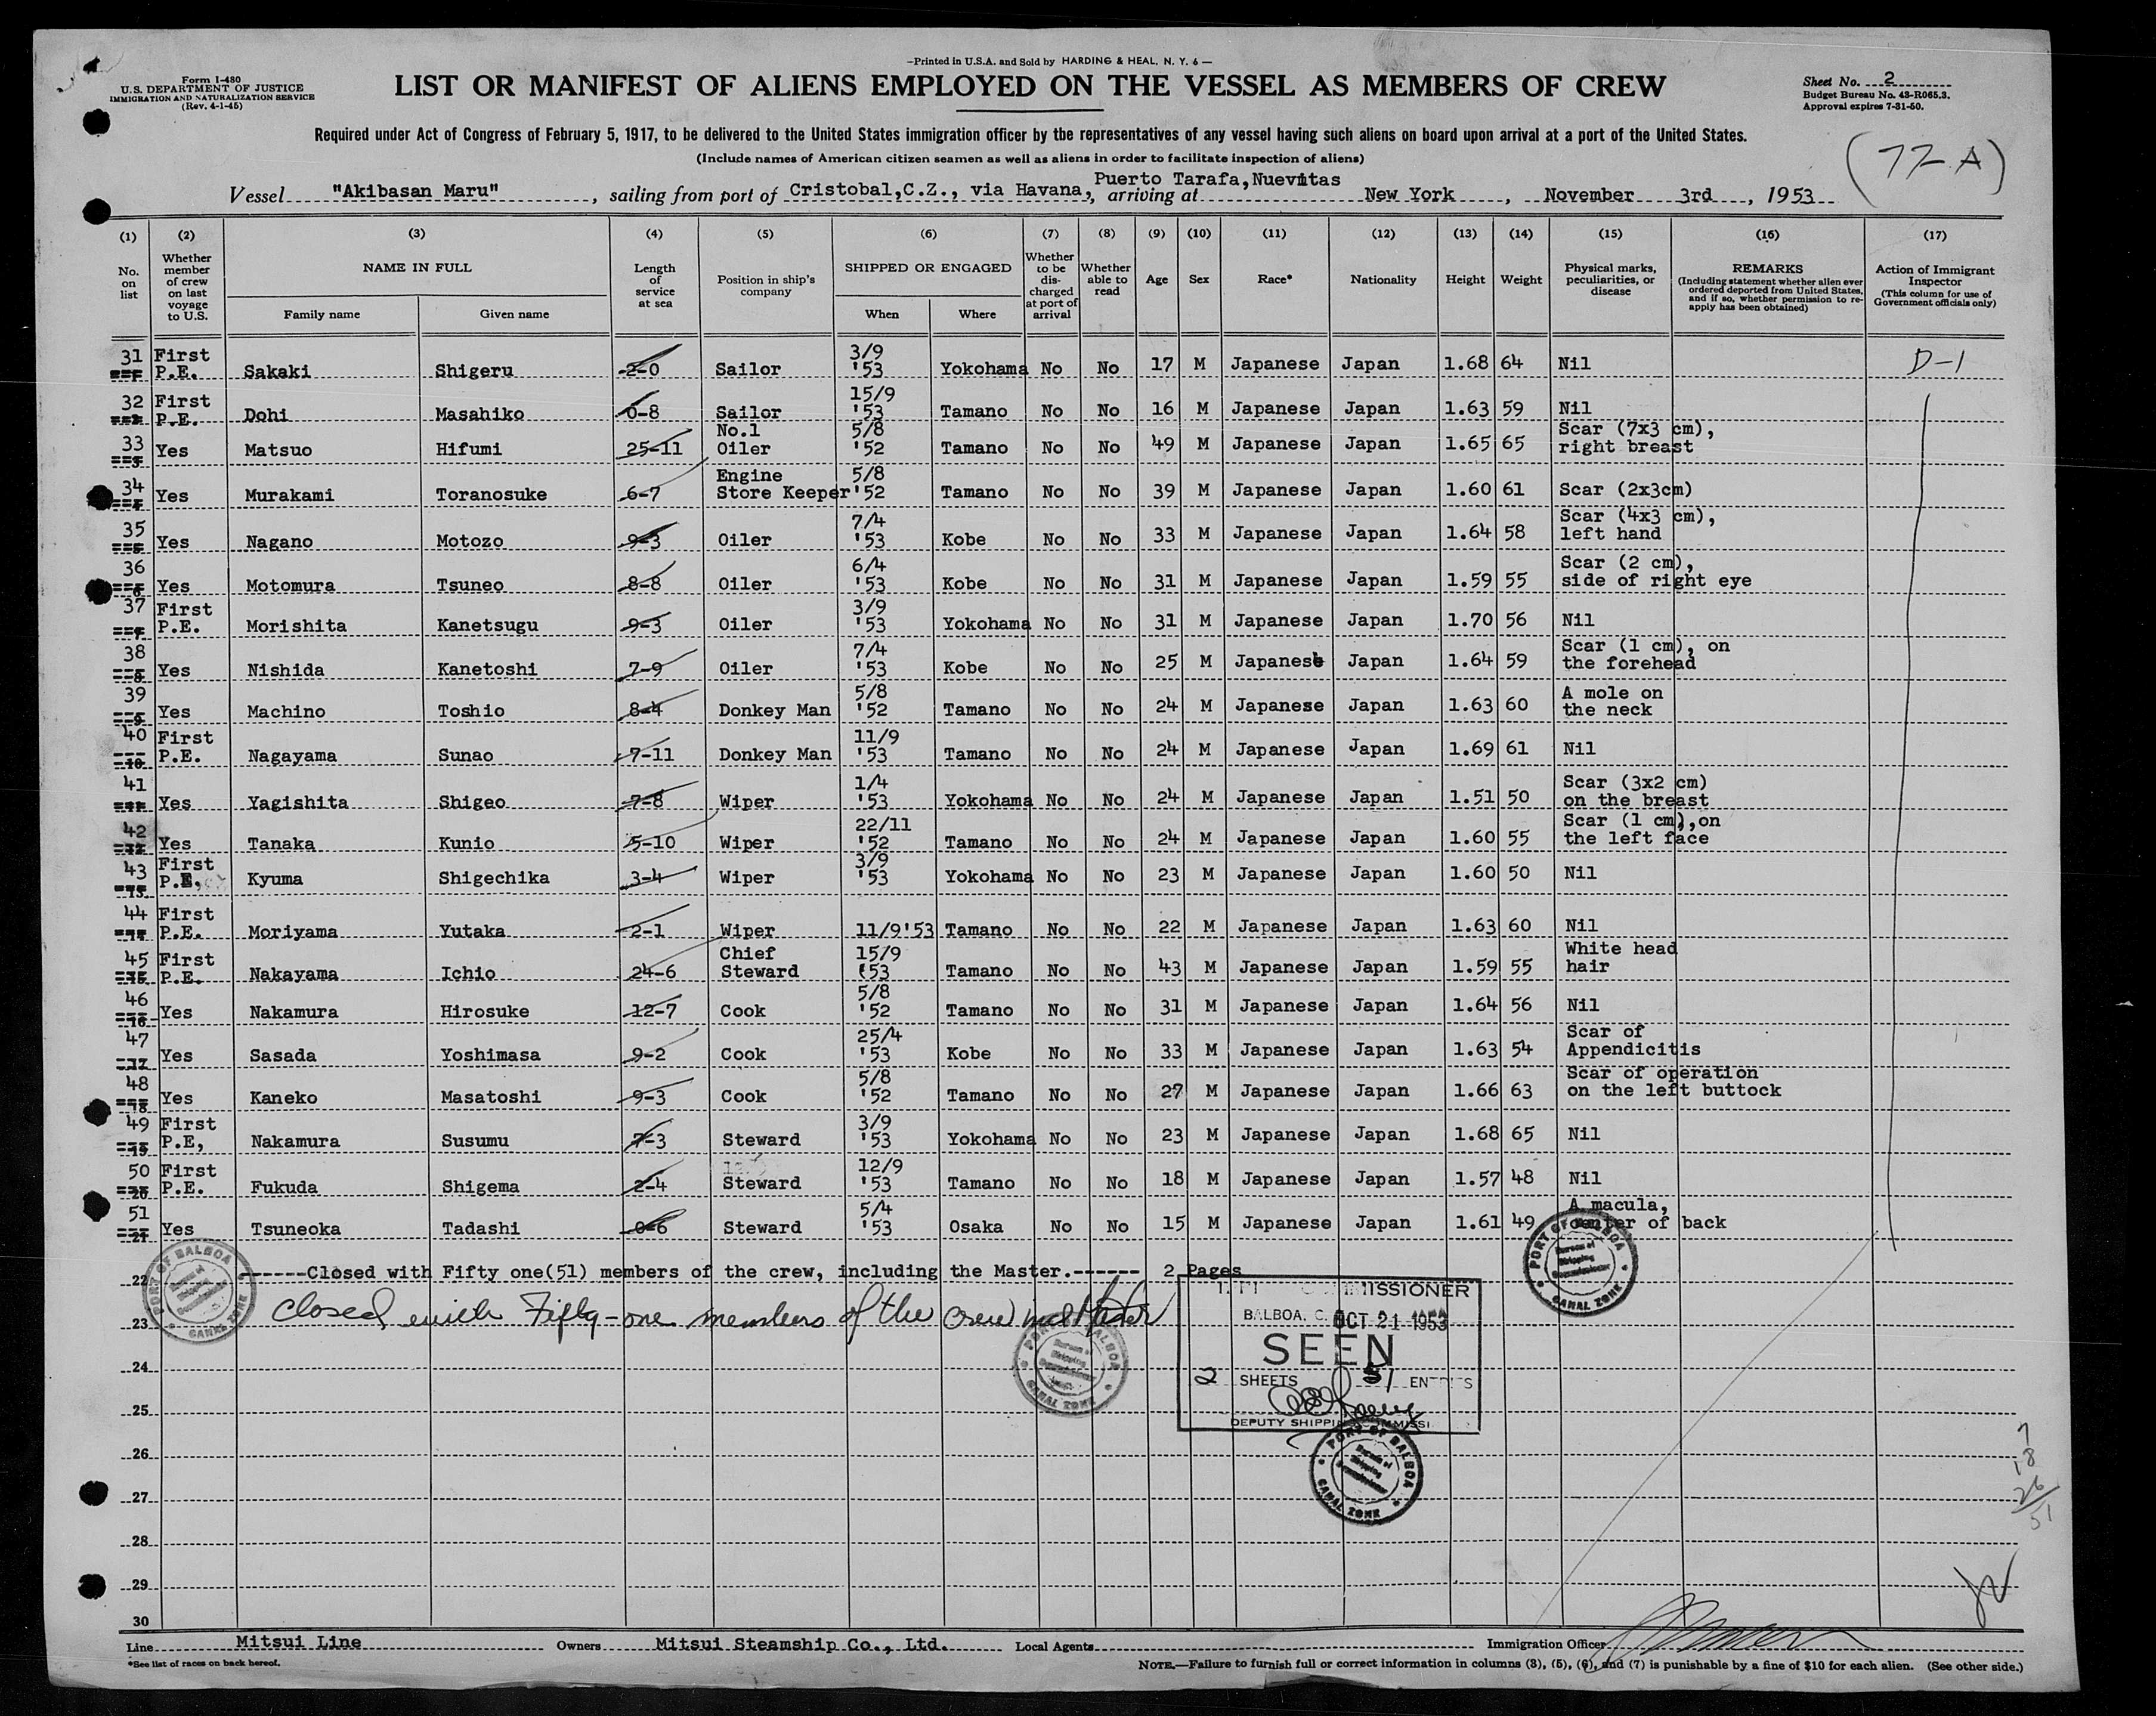 Form I-480
U.S. DEPARTMENT OF JUSTICE
IMMIGRATION AND NATURALIZATION SERVICE
(Rev. 4-1-45)
—Printed in U.S.A. and Sold by HARDING & HEAL, N. Y. 6—
LIST OR MANIFEST OF ALIENS EMPLOYED ON THE VESSEL AS MEMBERS OF CREW
Sheet No. 2
Budget Bureau No. 43-R065.3.
Approval expires 7-31-50.
Required under Act of Congress of February 5, 1917, to be delivered to the United States immigration officer by the representatives of any vessel having such aliens on board upon arrival at a port of the United States.
(Include names of American citizen seamen as well as aliens in order to facilitate inspection of aliens)
(77-A)
Vessel "Akibasan Maru", sailing from port of Cristobal,C.Z., via Havana, Puerto Tarafa,Nuevitas arriving at New York, November 3rd, 1953
(1) (2) (3) (4) (5) (6) (7) (8) (9) (10) (11) (12) (13) (14) (15) (16) (17)
No. on list
Whether member of crew on last voyage to U.S.
NAME IN FULL
Family name
Given name
Length of service at sea
Position in ship's company
SHIPPED OR ENGAGED
When
Where
Whether to be discharged at port of arrival
Whether able to read
Age
Sex
Race*
Nationality
Height
Weight
Physical marks, peculiarities, or disease
REMARKS
(Including statement whether alien ever ordered deported from United States, and if so, whether permission to reapply has been obtained)
Action of Immigrant Inspector
(This column for use of Government officials only)
31 First P.E. Sakaki Shigeru 2-0 Sailor 3/9 '53 Yokohama No No 17 M Japanese Japan 1.68 64 Nil D-1
32 First P.E. Dohi Masahiko 0-8 Sailor 15/9 '53 Tamano No No 16 M Japanese Japan 1.63 59 Nil
33 Yes Matsuo Hifumi 25-11 No.1 Oiler 5/8 '52 Tamano No No 49 M Japanese Japan 1.65 65 Scar (7x3 cm), right breast
34 Yes Murakami Toranosuke 6-7 Engine Store Keeper 5/8 '52 Tamano No No 39 M Japanese Japan 1.60 61 Scar (2x3cm)
35 Yes Nagano Motozo 9-3 Oiler 7/4 '53 Kobe No No 33 M Japanese Japan 1.64 58 Scar (4x3 cm), left hand
36 Yes Motomura Tsuneo 8-8 Oiler 6/4 '53 Kobe No No 31 M Japanese Japan 1.59 55 Scar (2 cm), side of right eye
37 First P.E. Morishita Kanetsugu 9-3 Oiler 3/9 '53 Yokohama No No 31 M Japanese Japan 1.70 56 Nil
38 Yes Nishida Kanetoshi 7-9 Oiler 7/4 '53 Kobe No No 25 M Japanese Japan 1.64 59 Scar (1 cm), on the forehead
39 Yes Machino Toshio 8-4 Donkey Man 5/8 '52 Tamano No No 24 M Japanese Japan 1.63 60 A mole on the neck
40 First P.E. Nagayama Sunao 7-11 Donkey Man 11/9 '53 Tamano No No 24 M Japanese Japan 1.69 61 Nil
41 Yes Yagishita Shigeo 7-8 Wiper 1/4 '53 Yokohama No No 24 M Japanese Japan 1.51 50 Scar (3x2 cm) on the breast
42 Yes Tanaka Kunio 5-10 Wiper 22/11 '52 Tamano No No 24 M Japanese Japan 1.60 55 Scar (1 cm),on the left face
43 First P.E, Kyuma Shigechika 3-4 Wiper 3/9 '53 Yokohama No No 23 M Japanese Japan 1.60 50 Nil
44 First P.E. Moriyama Yutaka 2-1 Wiper 11/9'53 Tamano No No 22 M Japanese Japan 1.63 60 Nil
45 First P.E. Nakayama Ichio 24-6 Chief Steward 15/9 '53 Tamano No No 43 M Japanese Japan 1.59 55 White head hair
46 Yes Nakamura Hirosuke 12-7 Cook 5/8 '52 Tamano No No 31 M Japanese Japan 1.64 56 Nil
47 Yes Sasada Yoshimasa 9-2 Cook 25/4 '53 Kobe No No 33 M Japanese Japan 1.63 54 Scar of Appendicitis
48 Yes Kaneko Masatoshi 9-3 Cook 5/8 '52 Tamano No No 27 M Japanese Japan 1.66 63 Scar of operation on the left buttock
49 First P.E, Nakamura Susumu 7-3 Steward 3/9 '53 Yokohama No No 23 M Japanese Japan 1.68 65 Nil
50 First P.E. Fukuda Shigema 2-4 Steward 12/9 '53 Tamano No No 18 M Japanese Japan 1.57 48 Nil
51 Yes Tsuneoka Tadashi 0-6 Steward 5/4 '53 Osaka No No 15 M Japanese Japan 1.61 49 A macula, center of back
22 -----Closed with Fifty one(51) members of the crew, including the Master.------ 2 Pages
23 Closed with Fifty-one members of the crew incl Master
24
25
26
27
28
29
30
PORT OF BALBOA
CANAL ZONE
PORT OF BALBOA
CANAL ZONE
MISSIONER
BALBOA, C. OCT 21 1953
SEEN
2 SHEETS 51 ENTRIES
DEPUTY SHIPPING COMMISSI
PORT OF BALBOA
Bureau of Shipping
CANAL ZONE
PORT OF BALBOA
Bureau of Shipping
CANAL ZONE
7
18
26
51
Line Mitsui Line Owners Mitsui Steamship Co., Ltd. Local Agents Immigration Officer
*See list of races on back hereof.
NOTE.—Failure to furnish full or correct information in columns (3), (5), (6), and (7) is punishable by a fine of $10 for each alien. (See other side.)